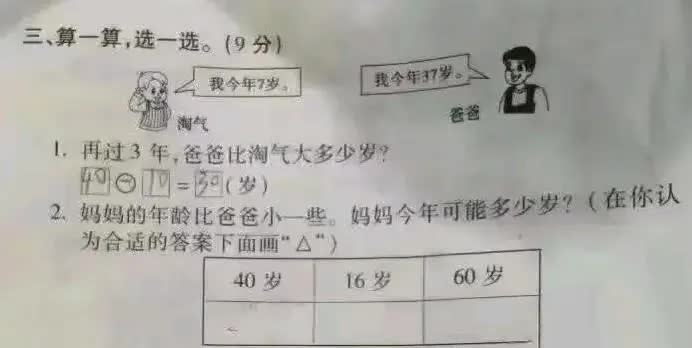 三、算一算,选一选。(9分)
我今年7岁。
我今年37岁。
淘气
爸爸
1. 再过3年,爸爸比淘气大多少岁?
40 - 10 = 30 (岁)
2. 妈妈的年龄比爸爸小一些。妈妈今年可能多少岁?(在你认
为合适的答案下面画“△”)
40岁 16岁 60岁